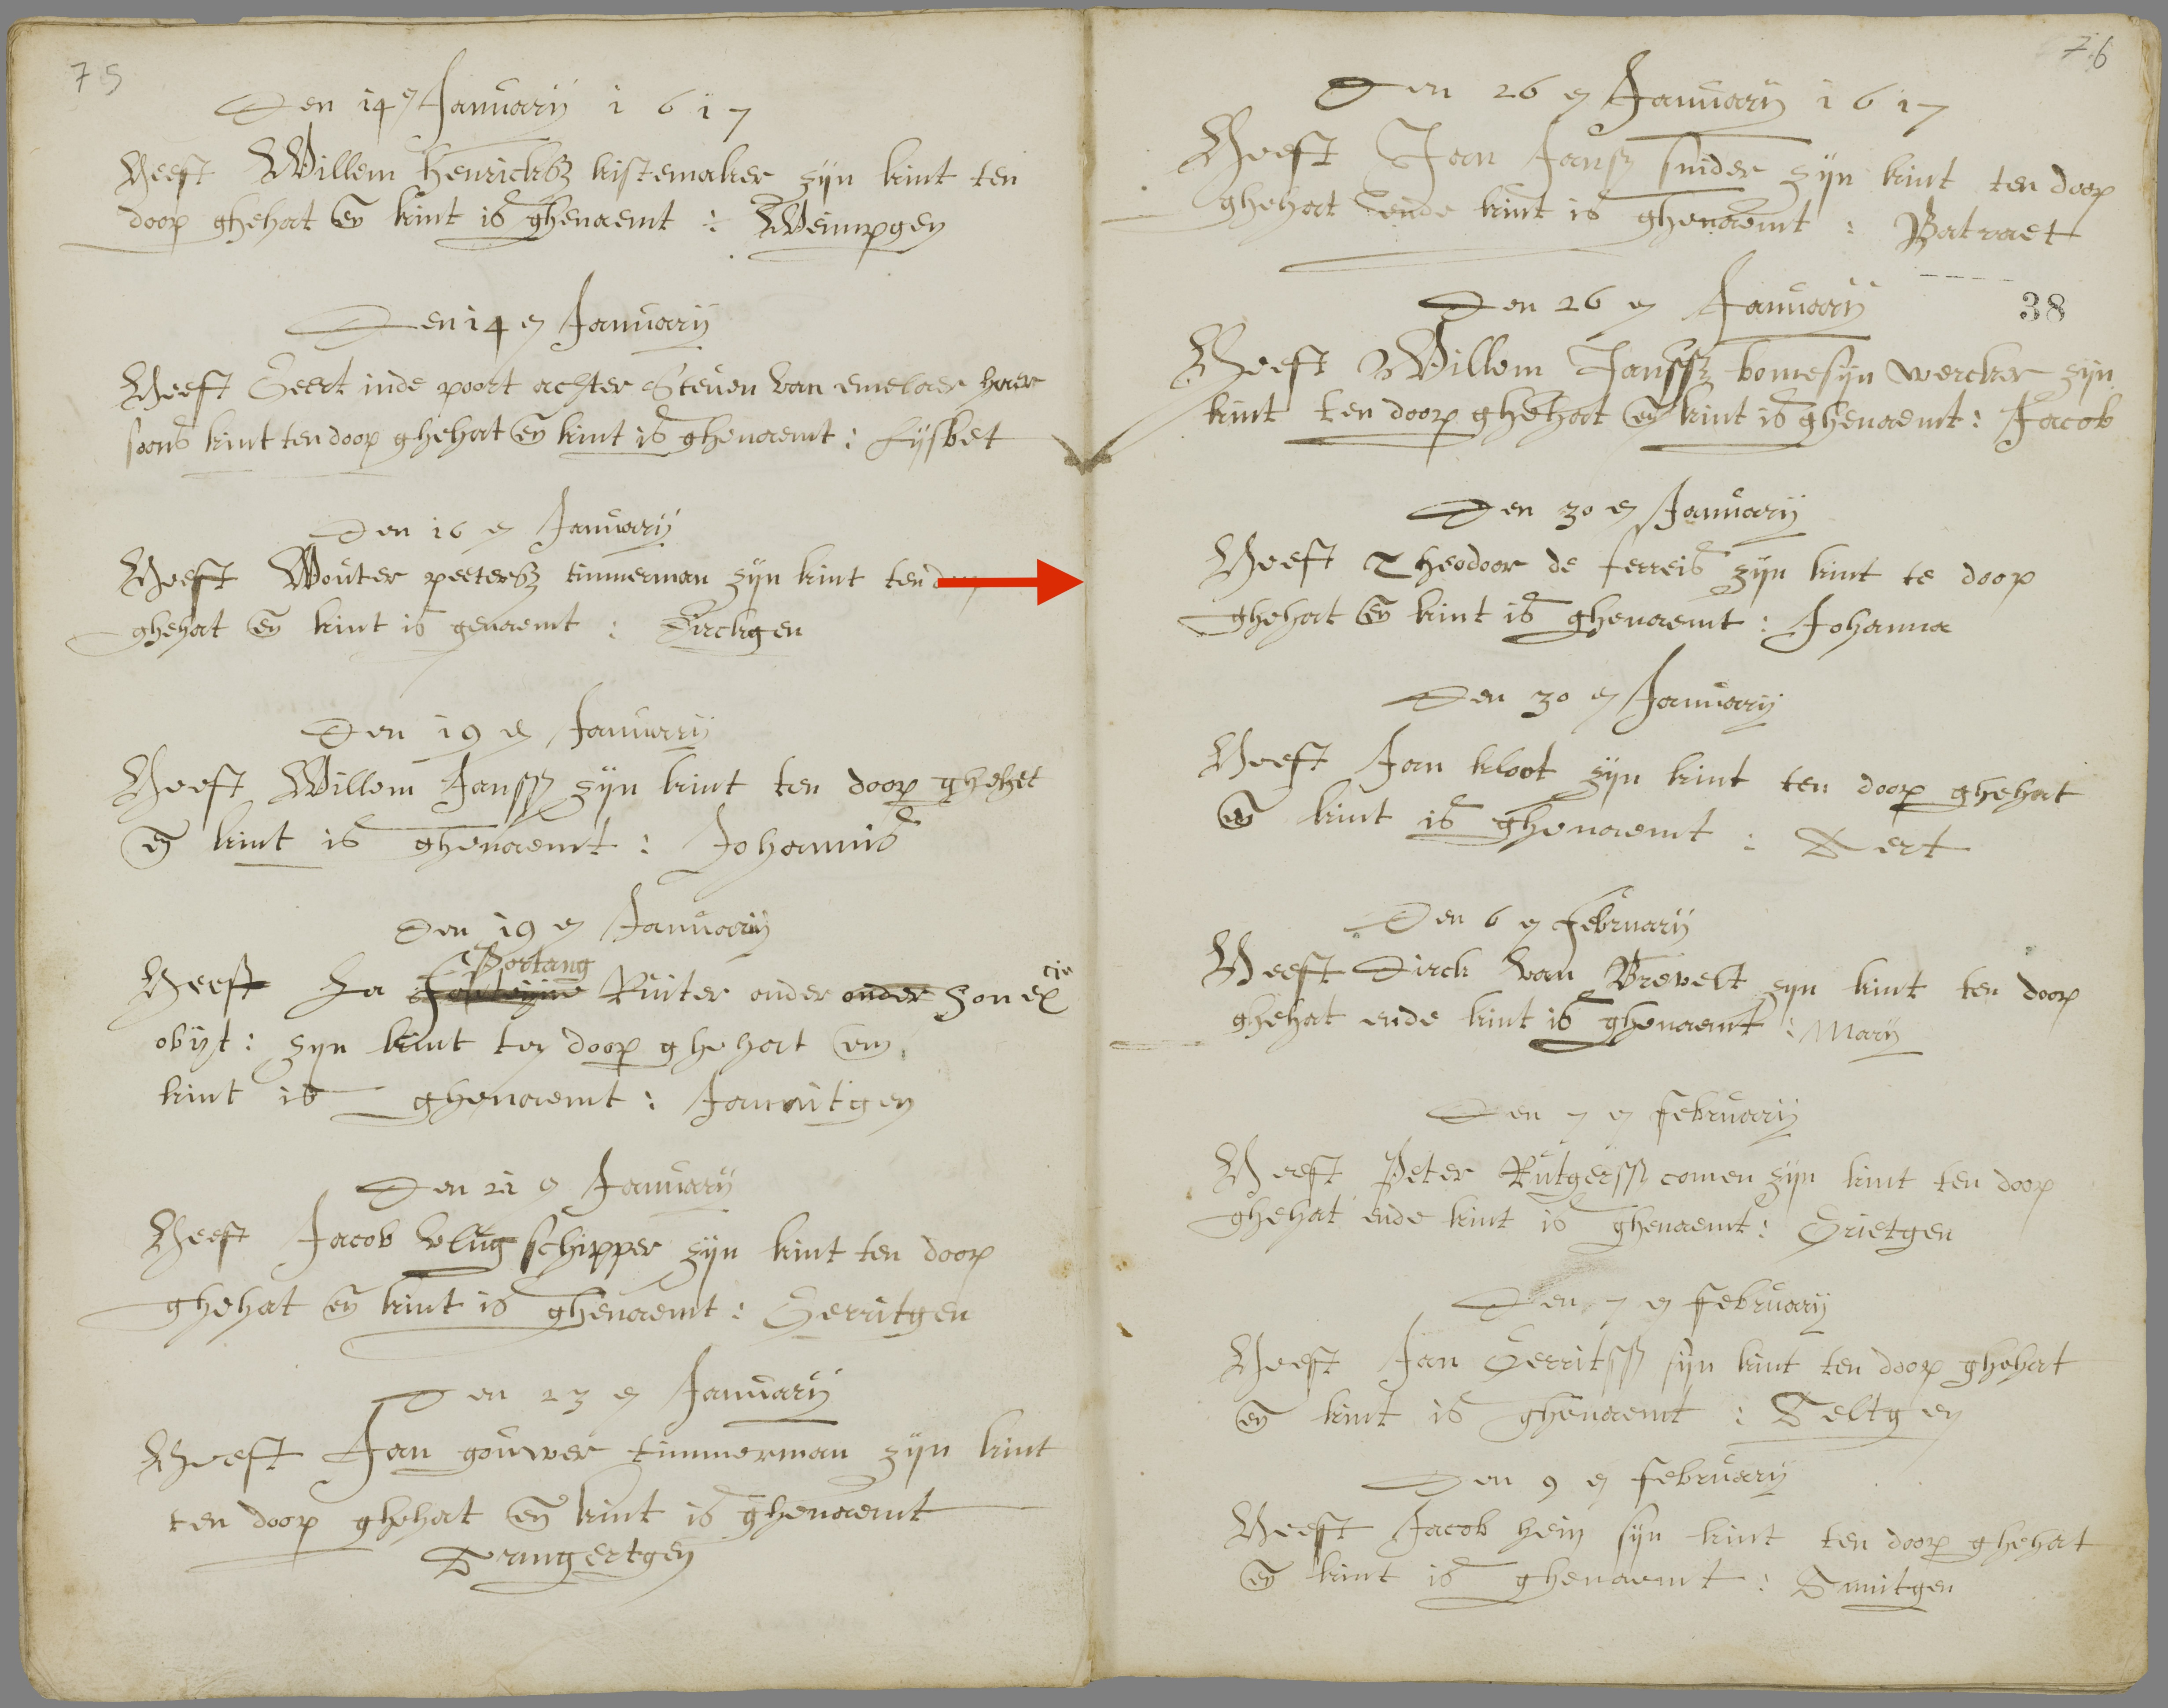 75
Den 14 en January 1617
Heeft Willem Henricksz kistemaker zyn kint ten
doop ghehat en kint is ghenaemt : Weimpgen
Den 14 en January
Heeft Geert inde poort achter Steven van emelaer haer
soons kint ten doop ghehat en kint is ghenaemt : Lijsbet
Den 16 en January
Heeft Wouter peetersz timmerman zyn kint ten doop
ghehat en kint is genaemt : Dirckgen
Den 19 en January
Heeft Willem Janssz zyn kint ten doop ghehet
en kint is ghenaemt : Johannis
Den 19 en January
Portang
Heeft La Ruiter onder onder zon ex cie
obijt : zyn kint ten doop ghehat en
kint is ghenaemt : Jannitgen
Den 21 en January
Heeft Jacob vlug schipper zyn kint ten doop
ghehat en kint is ghenaemt : Gerritgen
Den 23 en January
Heeft Jan gouwer timmerman zyn kint
ten doop ghehat en kint is ghenaemt
76
Den 26 en January 1617
Heeft Jan Jansz snider zyn kint ten doop
ghehat ende kint is ghenaemt : Batraet
Den 26 en January
38
Heeft Willem Janssz bomesijn wercker zyn
kint ten doop ghehat en kint is ghenaemt : Jacob
Den 30 en January
Heeft Theodoor de ferreis zyn kint te doop
ghehat en kint is ghenaemt : Johanna
Den 30 en January
Heeft Jan kloot zyn kint ten doop ghehat
en kint is ghenaemt : Aert
Den 6 en february
Heeft Dirck van Brevelt zyn kint ten doop
ghehat ende kint is ghenaemt : Mary
Den 7 en february
Heeft Peter Rutgerss comen zyn kint ten doop
ghehat ende kint is ghenaemt : Grietgen
Den 7 en february
Heeft Jan Gerritss sijn kint ten doop ghehat
en kint is ghenaemt : Aeltgen
Den 9 en february
Heeft Jacob hein sijn kint ten doop ghehat
en kint is ghenaemt : Annitgen